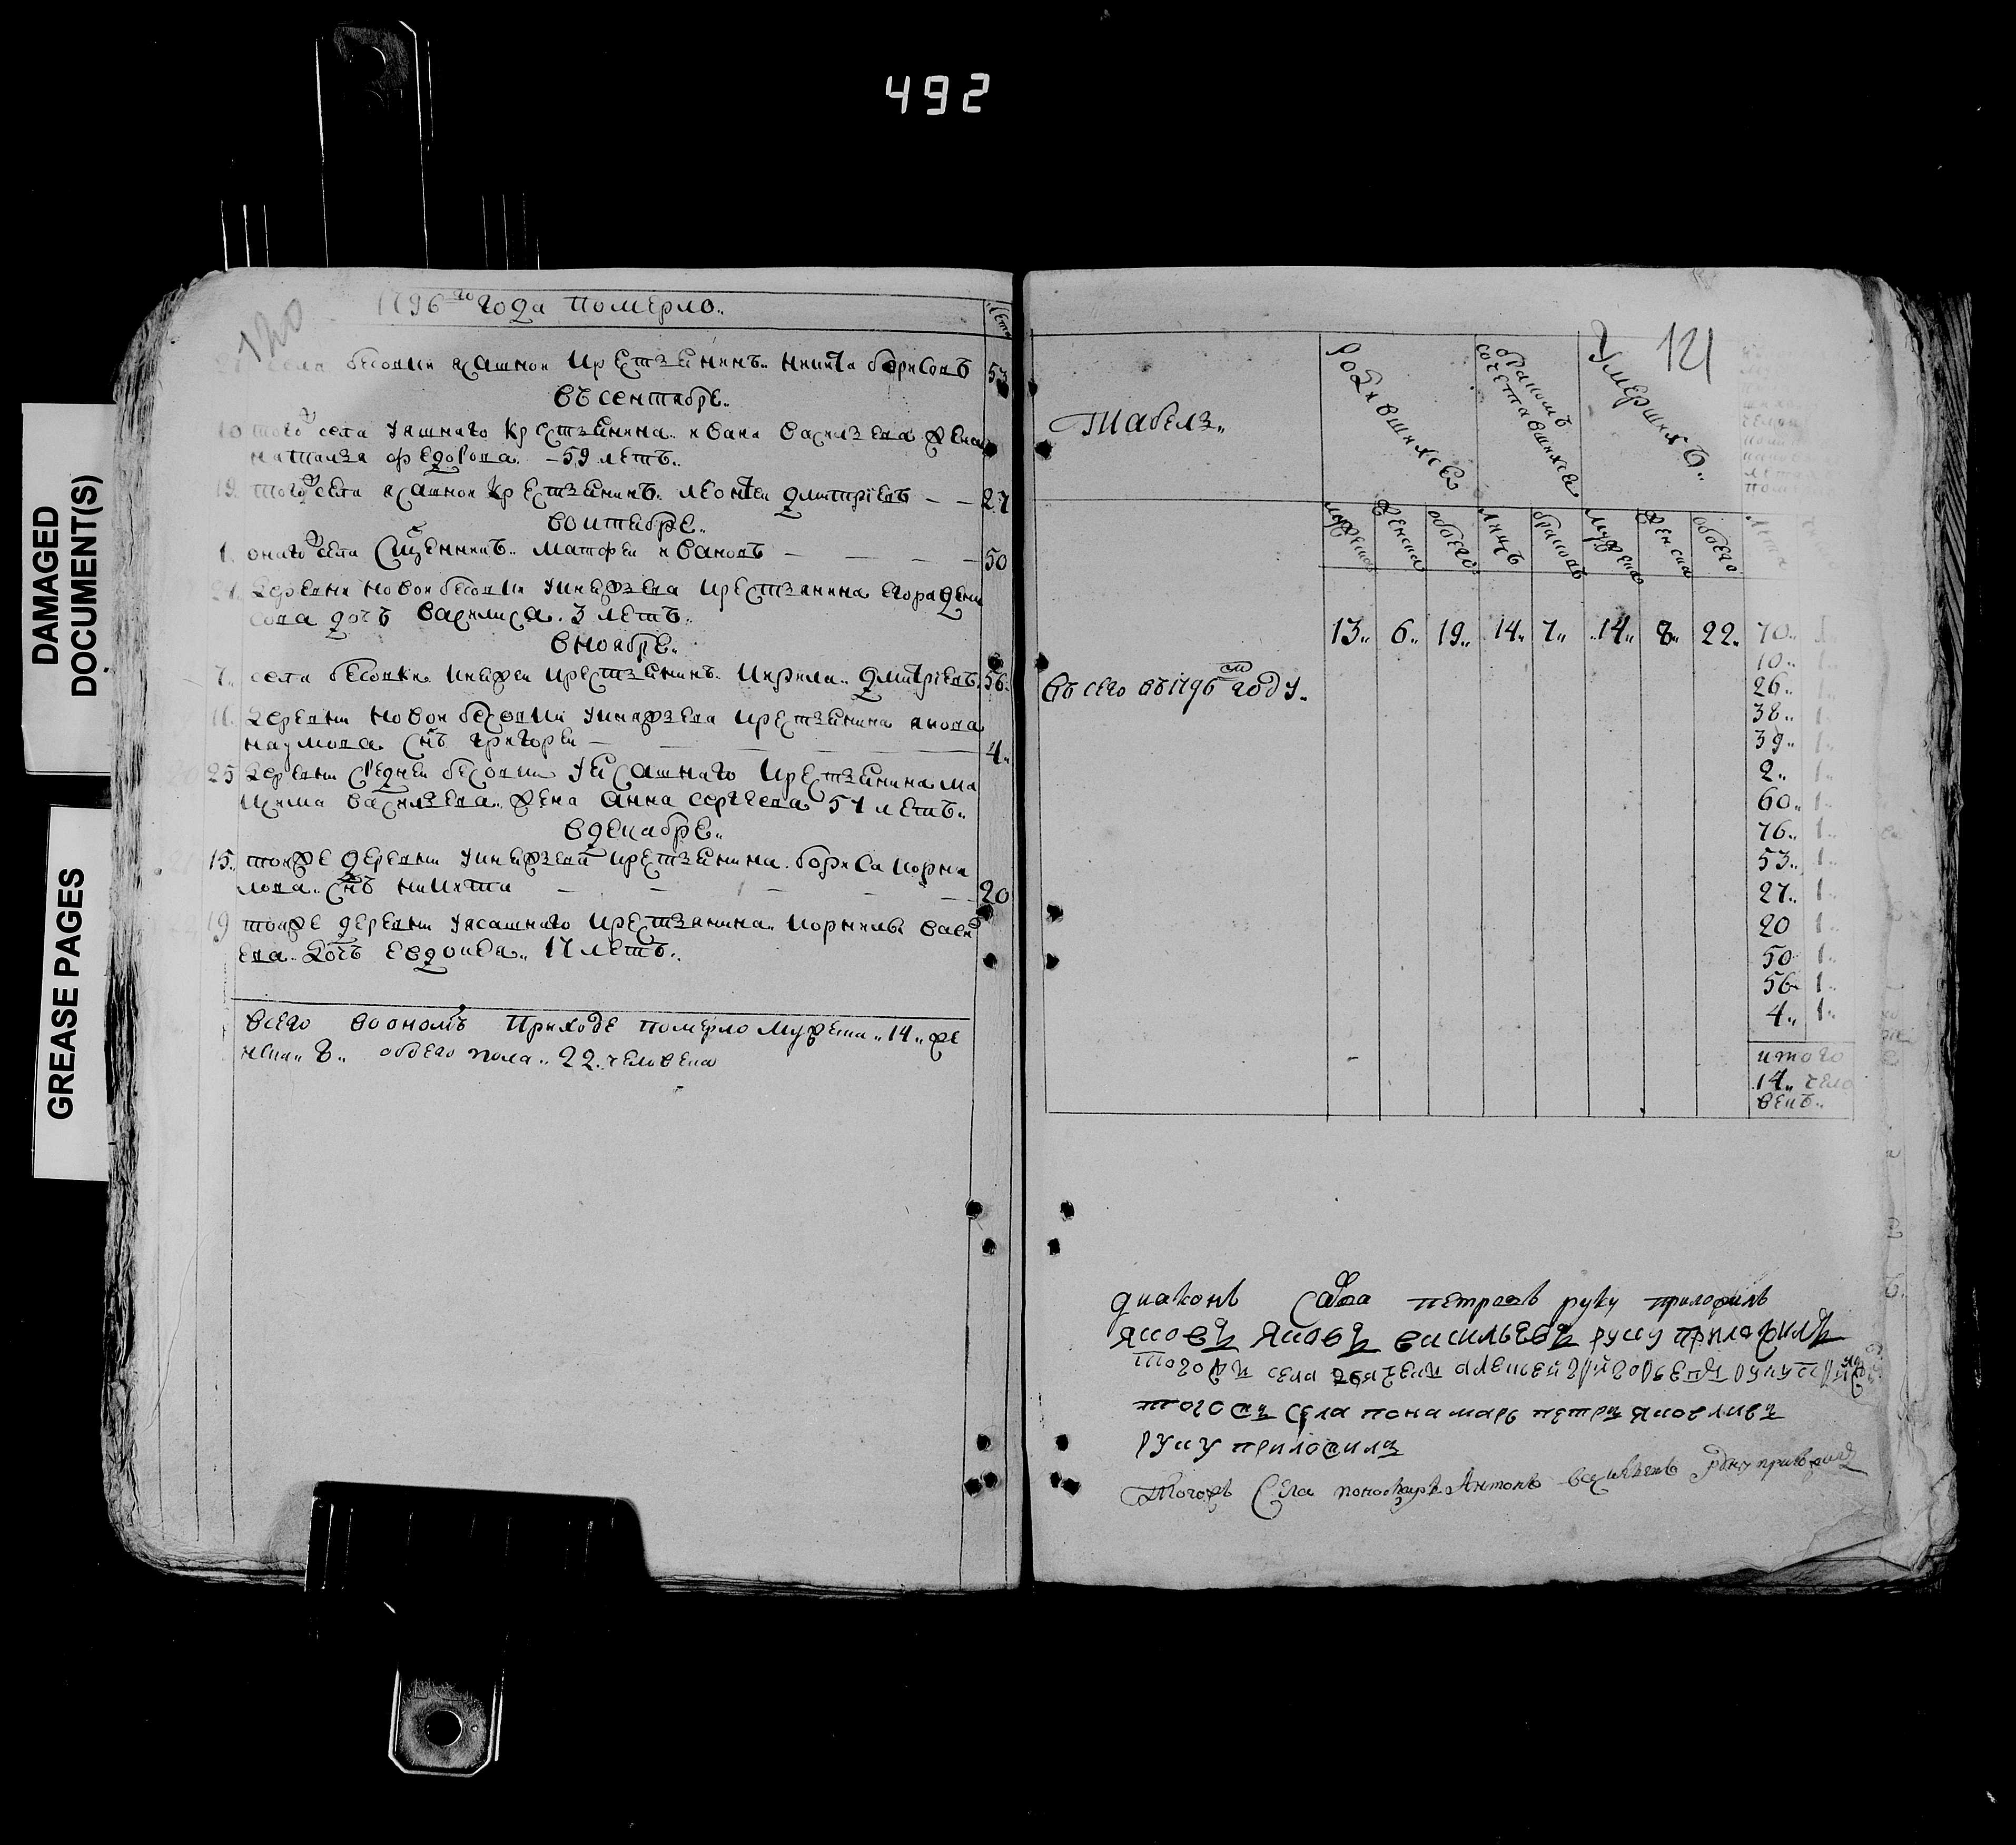 492
DAMAGED
DOCUMENT(S)
GREASE PAGES
120
1796го года померло..
лет
села бесовки ясашной крестьянинъ.. никита борисовъ 53
въ сентябре..
10 того села ушнаго крестьянина ивана васильева жена
наталья федорова - 59 летъ..
19. тогож села ясашной крестьянинъ.. леонтеи дмитриевъ — — 27
воктябре..
1. оногож села священникъ.. матфеи ивановъ — — — 50
21. деревни новои бесовки укняжева крестьянина егора дени
сова дочь василиса. 3 летъ..
в ноябре..
7.. села бесовки княжеи крестьянинъ. кирила.. дмитриевъ. 56.
11. деревни новои бесовки укняжева крестьянина якова
наумова снъ григореи — — — — 4..
25 деревни средней бесовки уясашнаго крестьянина ма
ксима васильева.. жена анна сергеева 51 летъ..
в декабре..
15.. тоиже деревни укняжева крестьянина. бориса корни
лова.. снъ никита — — — — 20
19 тоиже деревни уясашнаго крестьянина.. корнилы васи
ева.. дочь евдокея.. 17 летъ..
всего воономъ приходе померло мужеска.. 14.. же
неска.. 8.. обоего пола.. 22. человека
121
Табель..
родившихся
бракомъ
сочетавшихся
умершихъ..
мужеска женска обоего лицъ браковъ мужеска женска обоего лета
13.. 6.. 19.. 14.. 7.. 14.. 8.. 22.. 70.. 1
10.. 1..
въсего въ1796м году..
26.. 1..
38.. 1..
39.. 1..
2.. 1..
60.. 1..
76.. 1..
53.. 1..
27.. 1..
20 1..
50 1..
56 1..
4.. 1..
итого
14.. чело
векъ..
диаконъ Савва петровъ руку приложилъ
яковъ васильевъ руку приложилъ
тогожъ села алексей григорьевъ руку
тогожъ села понамарь петръ яковлевъ
руку приложилъ
Тогожъ Села Антонъ руку приложилъ